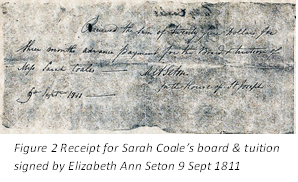 Received the sum of twenty five Dollars for
three months advance payment for the Board & tuition of
Miss Sarah Coale
EASeton
9th Septr 1811
In the house of St Joseph
Figure 2 Receipt for Sarah Coale's board & tuition
signed by Elizabeth Ann Seton 9 Sept 1811